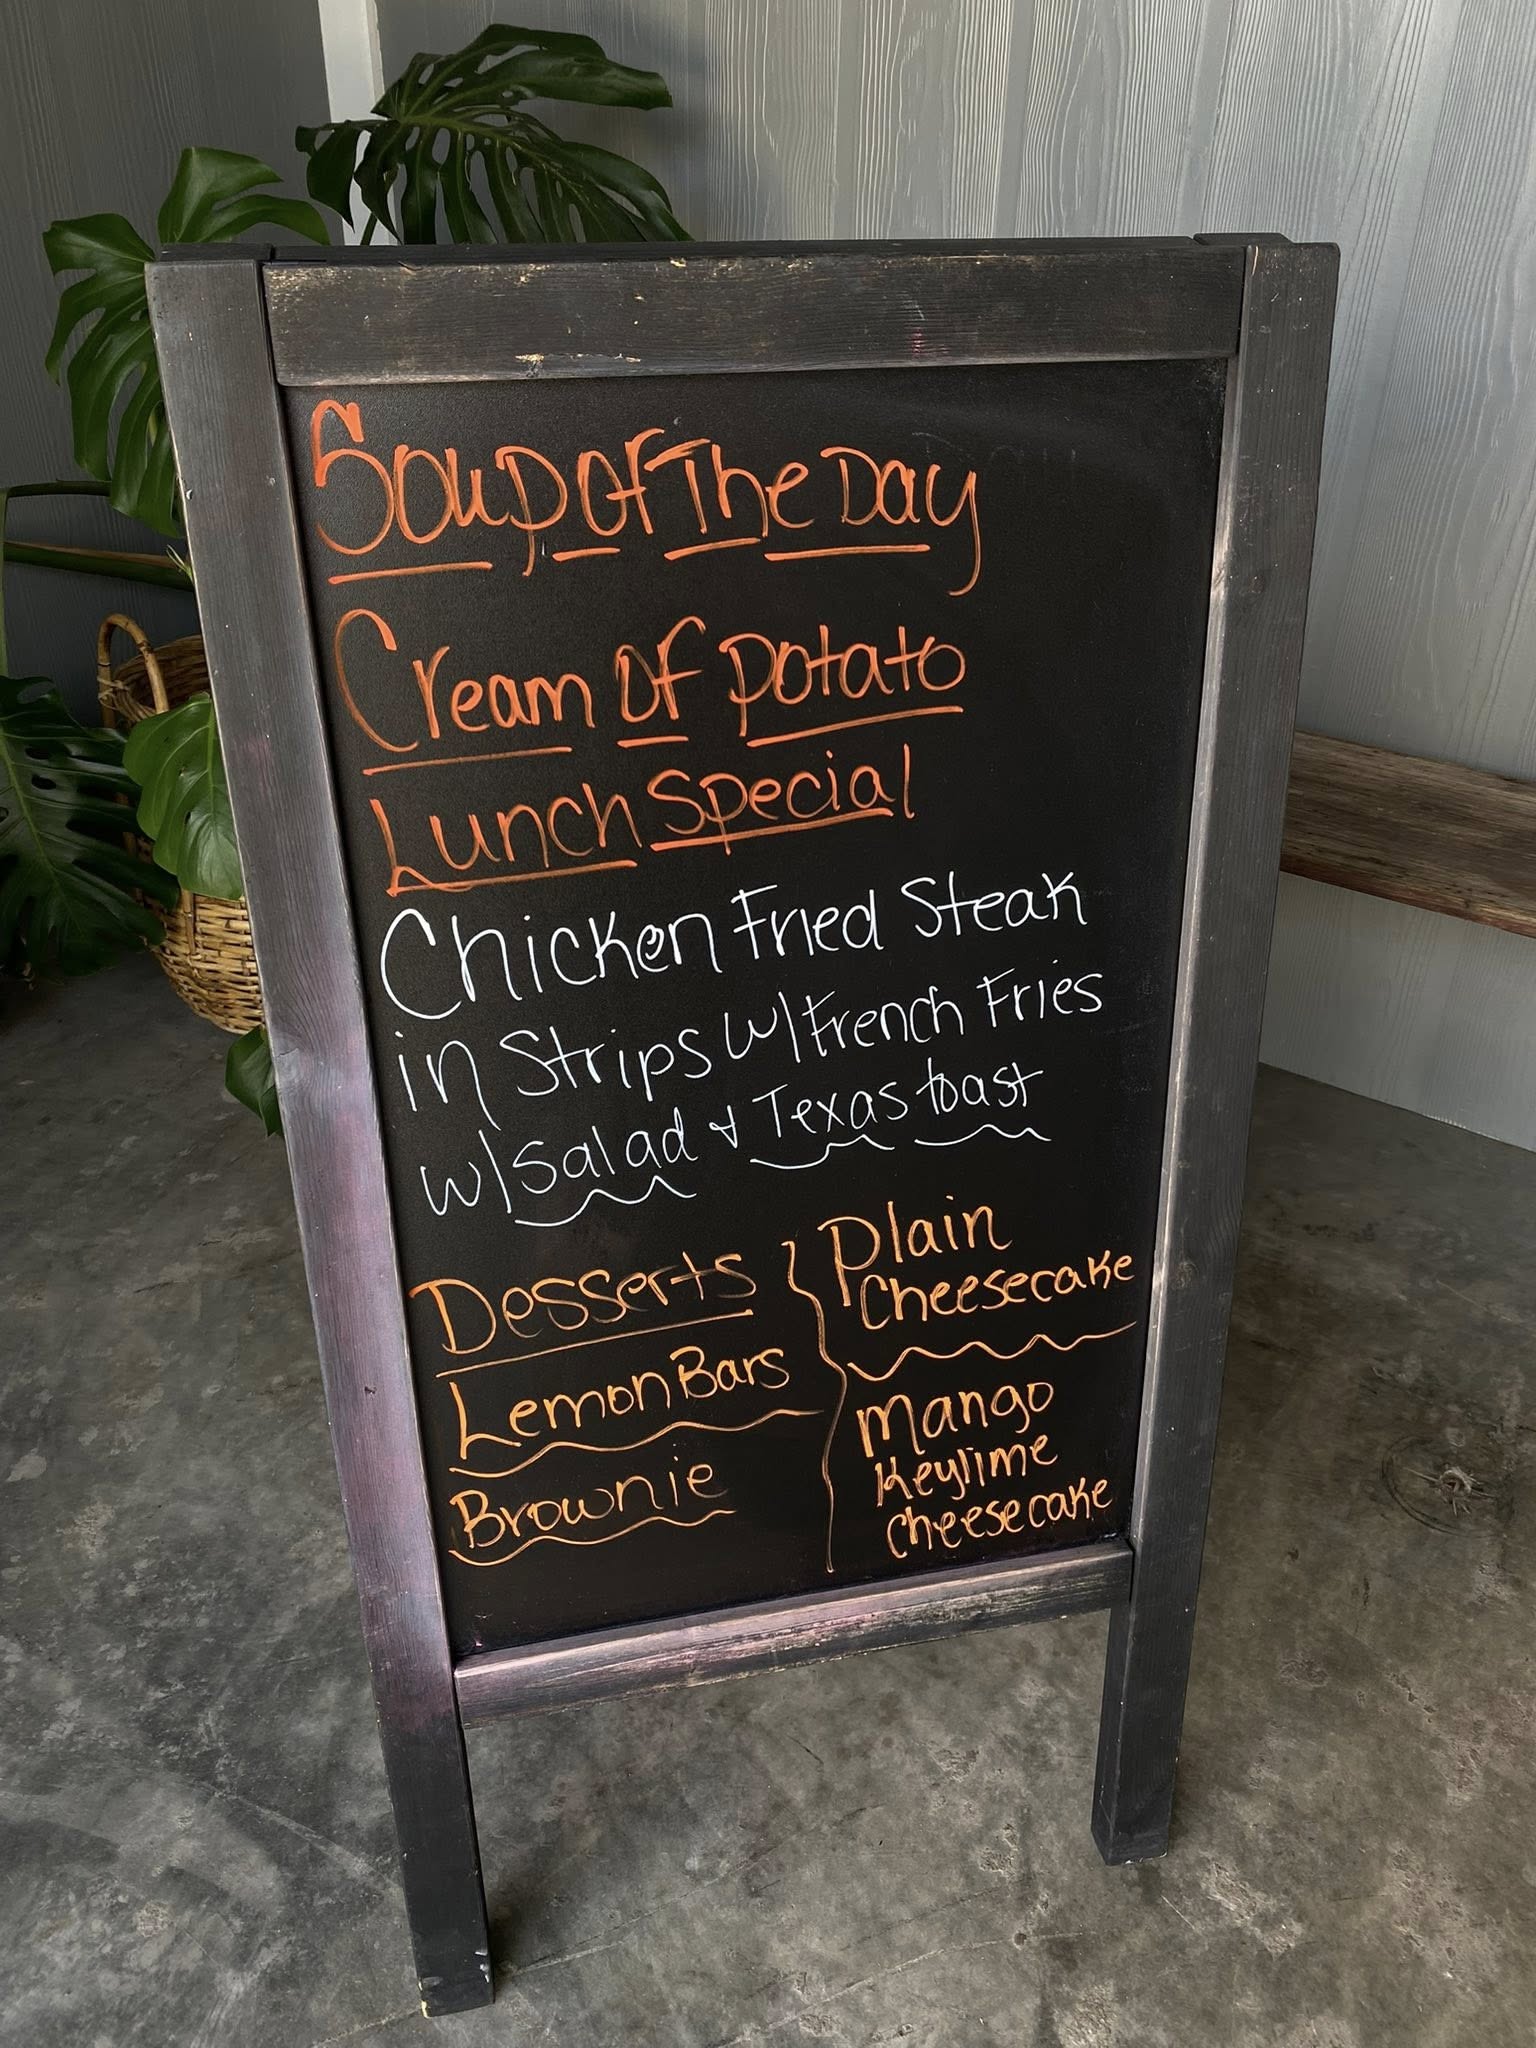 Soup of The Day
Cream of potato
Lunch Special
Chicken Fried Steak
in Strips w/ French Fries
w/ Salad & Texas toast
Desserts
Lemon Bars
Brownie
Plain
Cheesecake
Mango
Keylime
Cheesecake